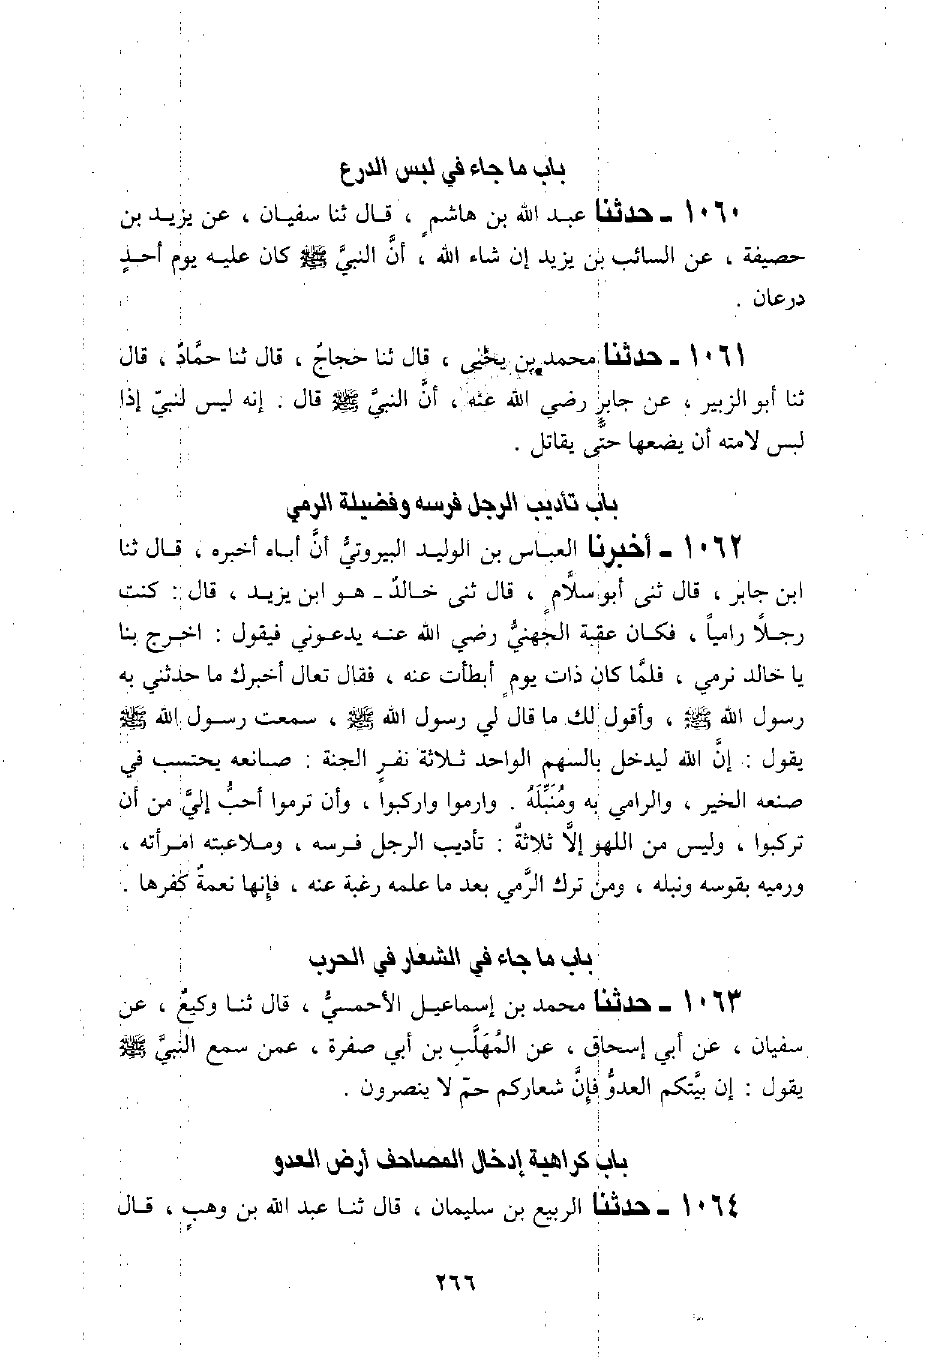 باب ما جاء في لبس الدرع
١٠٦٠ ـ حدثنا عبد الله بن هاشمٍ ، قال ثنا سفيان ، عن يزيد بن
حصيفة ، عن السائب بن يزيد إن شاء الله ، أنَّ النبيَّ ﷺ كان عليه يوم أحدٍ
درعان .
١٠٦١ ـ حدثنا محمد بن يحْيى ، قال ثنا حجاجٌ ، قال ثنا حمَّادٌ ، قال
ثنا أبو الزبير ، عن جابرٍ رضي الله عنه ، أنَّ النبيَّ ﷺ قال . إنه ليس لنبيّ إذا
لبس لامته أن يضعها حتَّى يقاتل .
باب تأديب الرجل فرسه وفضيلة الرمي
١٠٦٢ ـ أخبرنا العباس بن الوليد البيروتيُّ أنَّ أباه أخبره ، قال ثنا
ابن جابر ، قال ثنى أبو سلَّامٍ ، قال ثنى خالدٌ ـ هو ابن يزيد ، قال : كنت
رجلًا رامياً ، فكان عقبة الجهنيُّ رضي الله عنه يدعوني فيقول : اخرج بنا
يا خالد نرمي ، فلمَّا كان ذات يومٍ أبطأت عنه ، فقال تعال أخبرك ما حدثني به
رسول الله ﷺ ، وأقول لك ما قال لي رسول الله ﷺ ، سمعت رسول الله ﷺ
يقول : إنَّ الله ليدخل بالسهم الواحد ثلاثة نفرٍ الجنة : صانعه يحتسب في
صنعه الخير ، والرامي به ومُنَبِّلَهُ . وارموا واركبوا ، وأن ترموا أحبُّ إليَّ من أن
تركبوا ، وليس من اللهو إلَّا ثلاثةٌ : تأديب الرجل فرسه ، وملاعبته امرأته ،
ورميه بقوسه ونبله ، ومن ترك الرَّمي بعد ما علمه رغبة عنه ، فإنها نعمةٌ كفرها .
باب ما جاء في الشعار في الحرب
١٠٦٣ ـ حدثنا محمد بن إسماعيل الأحمسيُّ ، قال ثنا وكيعٌ ، عن
سفيان ، عن أبي إسحاق ، عن المُهَلَّبِ بن أبي صفرة ، عمن سمع النبيَّ ﷺ
يقول : إن بيَّتكم العدوُّ فإنَّ شعاركم حمّ لا ينصرون .
باب كراهية إدخال المصاحف أرض العدو
١٠٦٤ ـ حدثنا الربيع بن سليمان ، قال ثنا عبد الله بن وهبٍ ، قال
٢٦٦